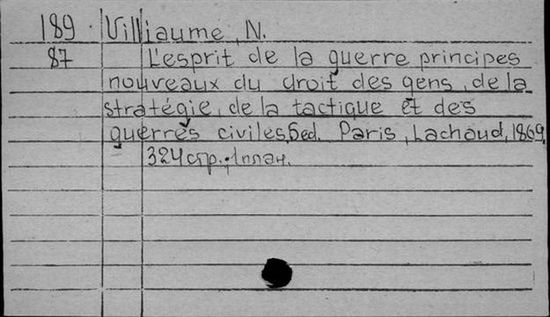 189 Villiaume, N.
87 L'esprit de la guerre principes
nouveaux du droit des gens, de la
stratégie, de la tactique et des
guerres civiles, 5ed. Paris, Lachaud, 1869,
324 стр.; 1план.